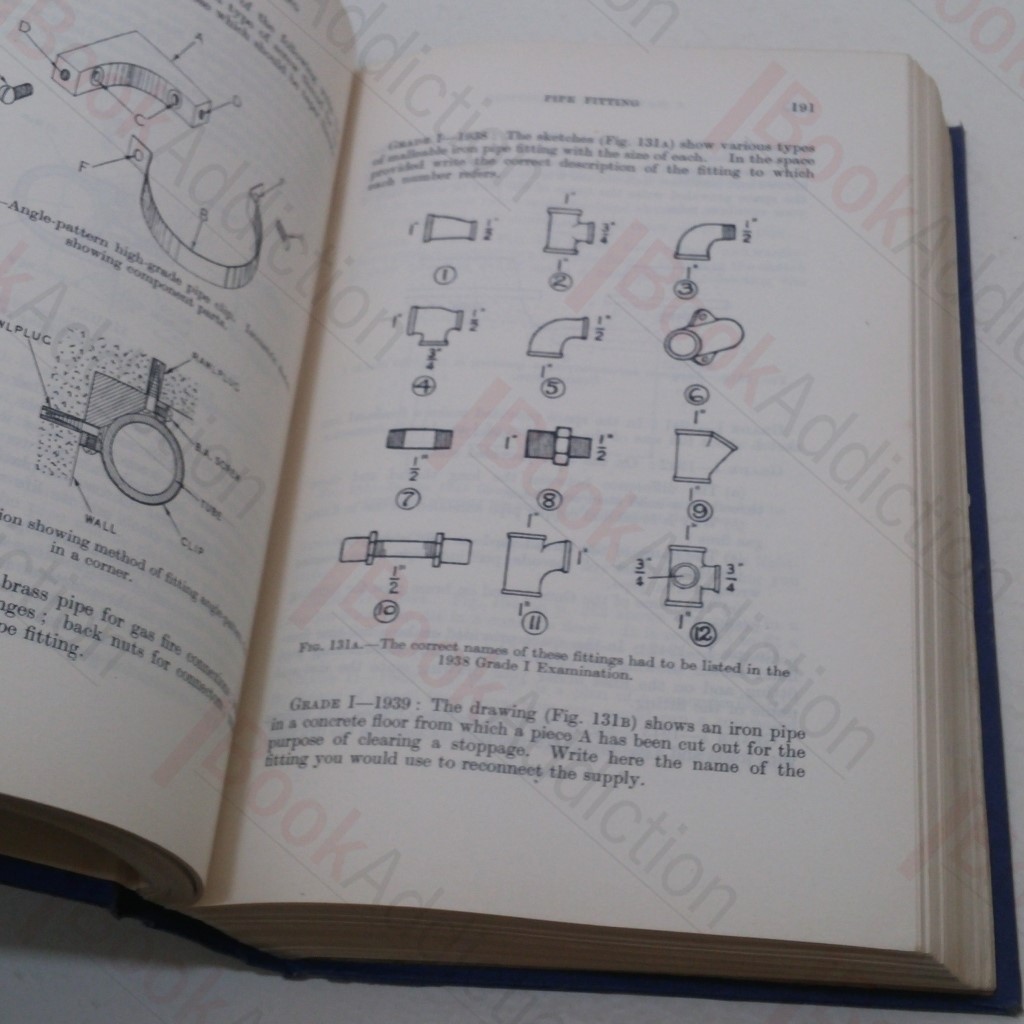 D
A
C
D
F
B
—Angle-pattern high-grade pipe clip.
showing component parts.
WLPLUG
RAWLPLUG
B.A. SCREW
TUBE
WALL
CLIP
ion showing method of fitting angle-pattern
in a corner.
brass pipe for gas fire connections
nges; back nuts for connectors
pe fitting.
PIPE FITTING
191
GRADE I—1938: The sketches (Fig. 131A) show various types
of malleable iron pipe fitting with the size of each. In the space
provided write the correct description of the fitting to which
each number refers.
1" 1/2"
1" 3/4" 1"
1/2" 1"
① ② ③
1" 1/2" 3/4"
1/2" 1"
④ ⑤ ⑥
1/2"
1" 1/2"
1" 1"
⑦ ⑧ ⑨
1/2"
1" 1" 1"
1" 3/4" 3/4" 1"
⑩ ⑪ ⑫
FIG. 131A.—The correct names of these fittings had to be listed in the
1938 Grade I Examination.
GRADE I—1939: The drawing (Fig. 131B) shows an iron pipe
in a concrete floor from which a piece A has been cut out for the
purpose of clearing a stoppage. Write here the name of the
fitting you would use to reconnect the supply.
BookAddiction